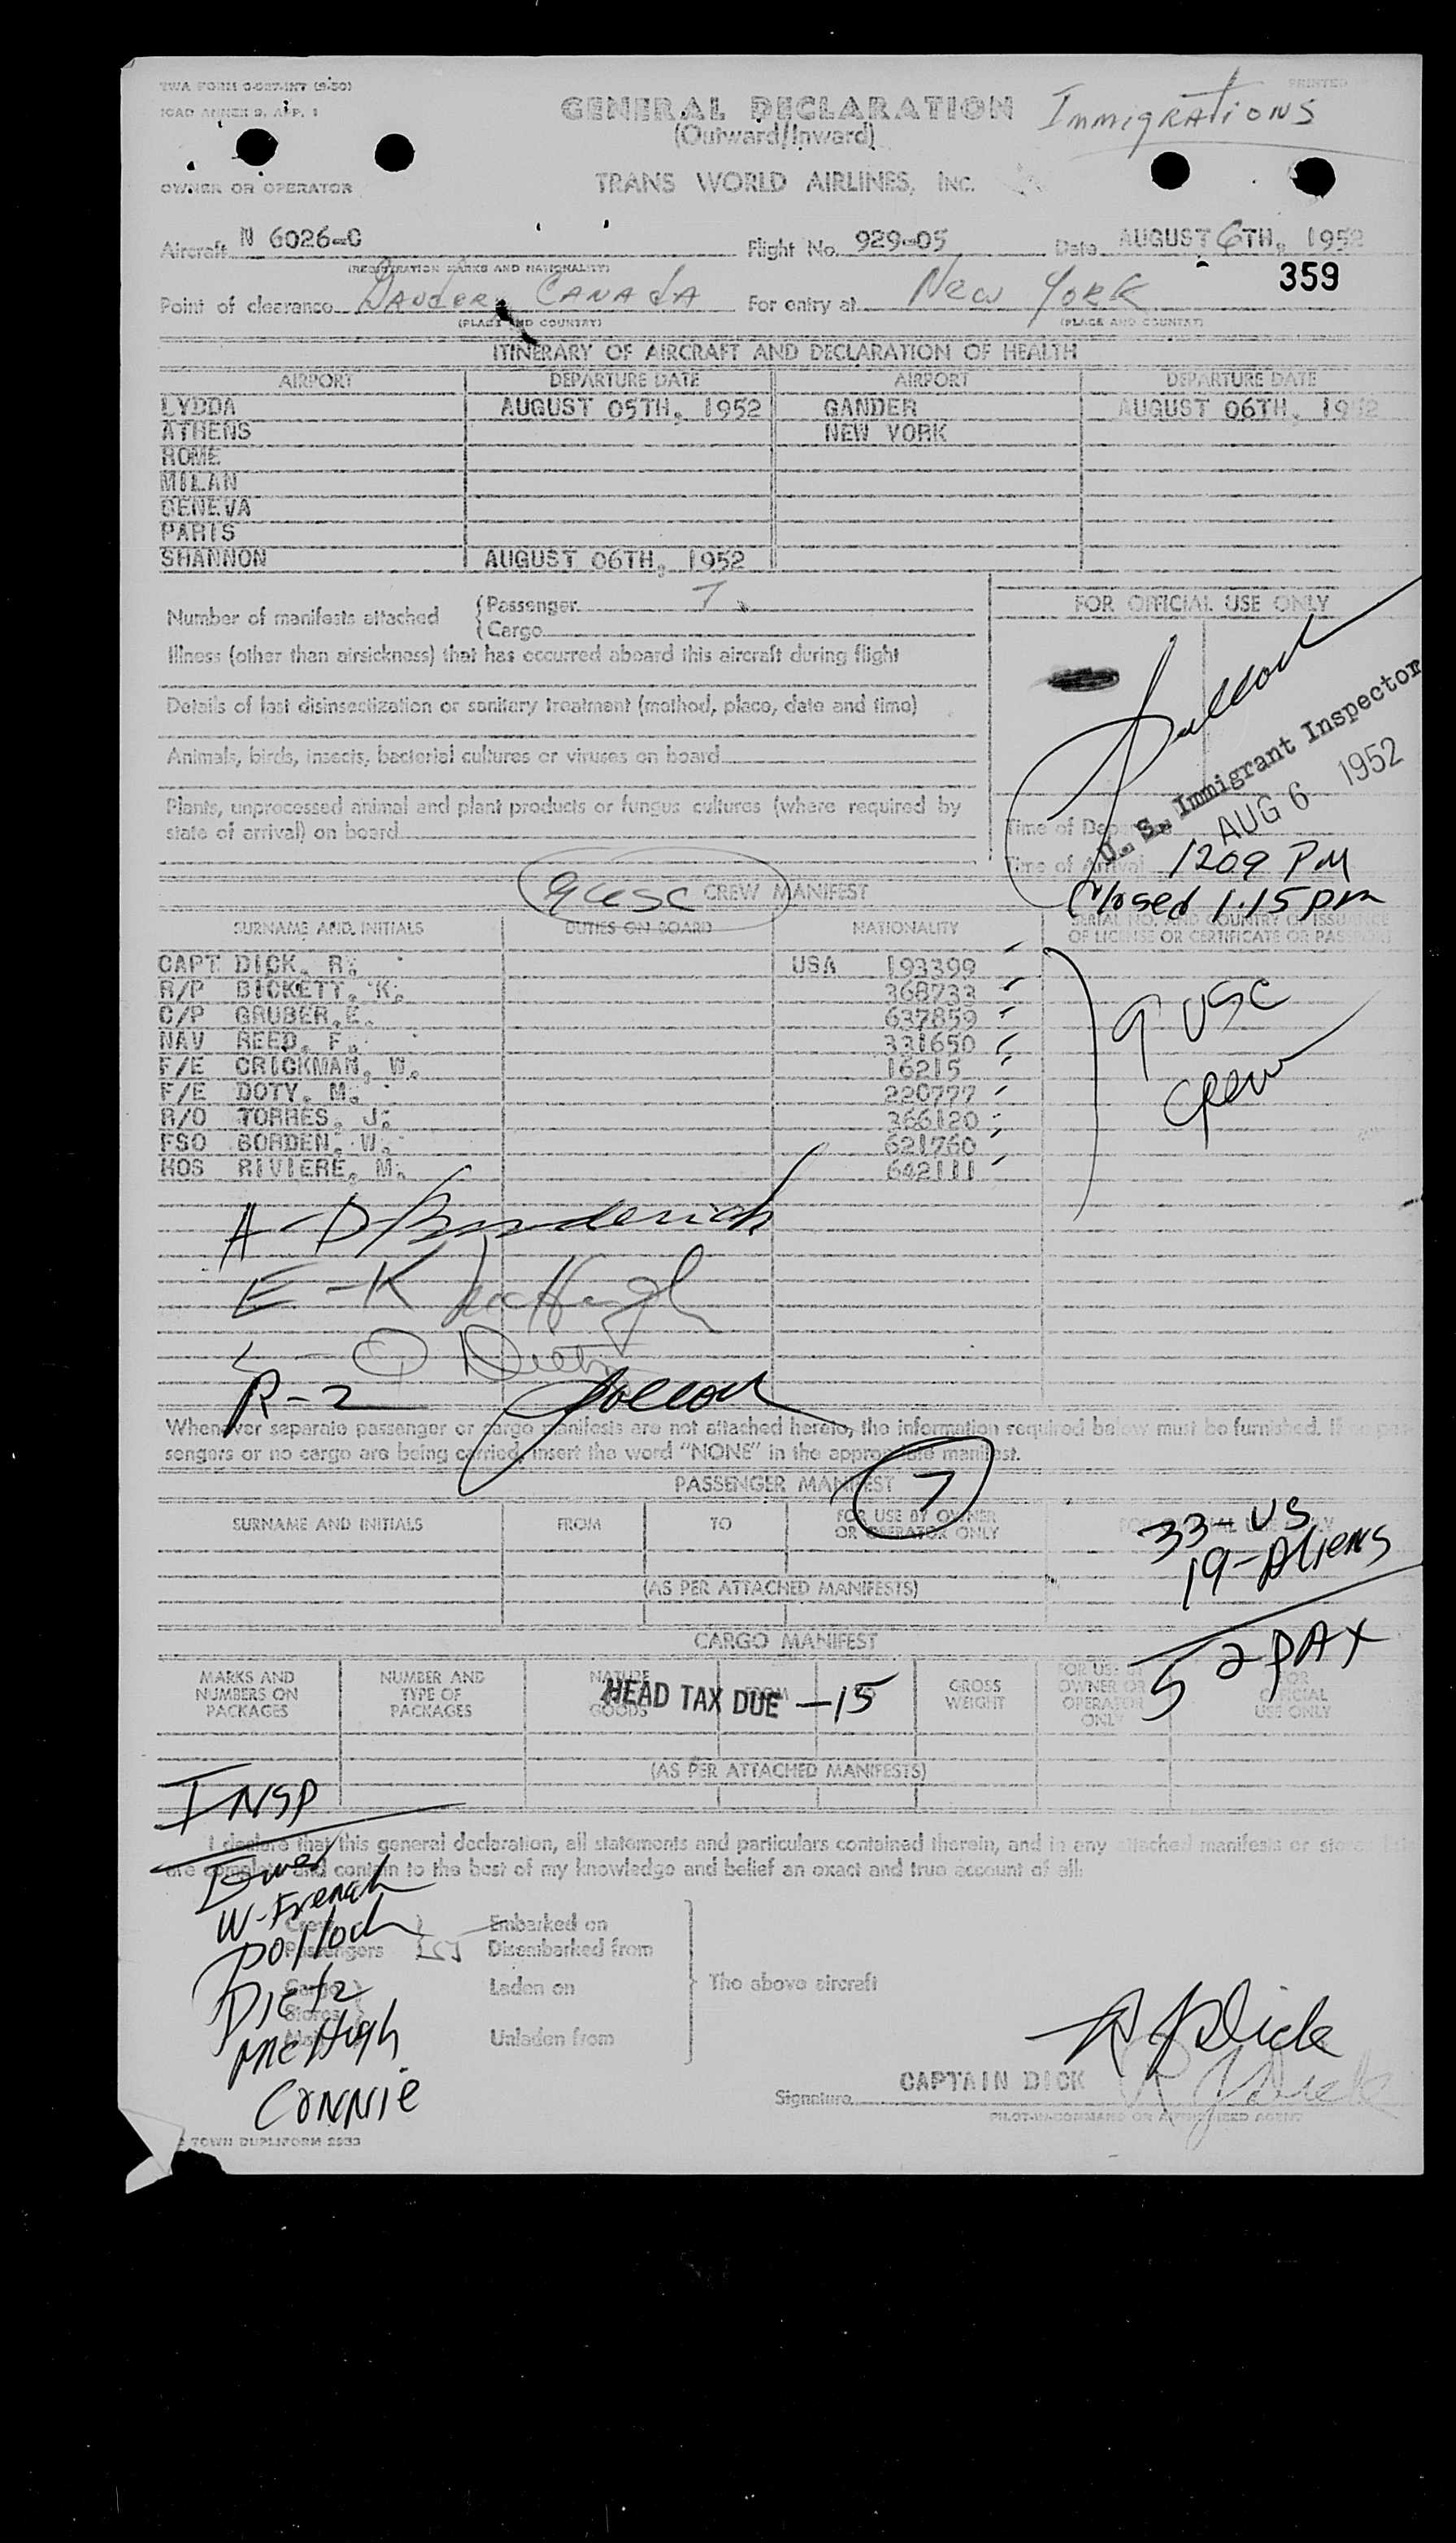 TWA FORM O-027-INT (9-50)
PRINTED
ICAO ANNEX 9, APP. 1
GENERAL DECLARATION
Immigrations
(Outward/Inward)
OWNER OR OPERATOR
TRANS WORLD AIRLINES, INC.
Aircraft N 6026-C Flight No. 929-05 Date AUGUST 6TH, 1952
(REGISTRATION MARKS AND NATIONALITY)
359
Point of clearance Gander, Canada For entry at New York
(PLACE AND COUNTRY) (PLACE AND COUNTRY)
ITINERARY OF AIRCRAFT AND DECLARATION OF HEALTH
AIRPORT DEPARTURE DATE AIRPORT DEPARTURE DATE
LYDDA AUGUST 05TH, 1952 GANDER AUGUST 06TH, 1952
ATHENS NEW YORK
ROME
MILAN
GENEVA
PARIS
SHANNON AUGUST 06TH, 1952
Number of manifests attached
Passenger 7
Cargo
FOR OFFICIAL USE ONLY
Illness (other than airsickness) that has occurred aboard this aircraft during flight
Details of last disinsectization or sanitary treatment (method, place, date and time)
Animals, birds, insects, bacterial cultures or viruses on board
Plants, unprocessed animal and plant products or fungus cultures (where required by
state of arrival) on board
Pollock
U. S. Immigrant Inspector
AUG 6 1952
Time of Departure
Time of Arrival 1209 PM
Closed 1.15 pm
9 USC CREW MANIFEST
SURNAME AND INITIALS DUTIES ON BOARD NATIONALITY SERIAL NO. AND COUNTRY OF ISSUANCE
OF LICENSE OR CERTIFICATE OR PASSPORT
CAPT DICK, R. USA 193399
R/P BICKETT, K. 368733
C/P GRUBER, E. 637859
NAV REED, F. 331650
F/E CRICKMAN, W. 16215
F/E DOTY, M. 220777
R/O TORRES, J. 366120
FSO BORDEN, W. 621760
HOS RIVIERE, M. 642111
9 USC
Crew
A-D
E-K McHugh
R-Z Pollock
Whenever separate passenger or cargo manifests are not attached hereto, the information required below must be furnished. If no pas-
sengers or no cargo are being carried, insert the word "NONE" in the appropriate manifest.
PASSENGER MANIFEST
7
SURNAME AND INITIALS FROM TO FOR USE BY OWNER
OR OPERATOR ONLY
FOR OFFICIAL USE ONLY
33-US
19-Aliens
52 PAX
(AS PER ATTACHED MANIFESTS)
CARGO MANIFEST
MARKS AND
NUMBERS ON
PACKAGES
NUMBER AND
TYPE OF
PACKAGES
NATURE
GOODS
FROM
GROSS
WEIGHT
FOR USE BY
OWNER OR
OPERATOR
ONLY
FOR
OFFICIAL
USE ONLY
HEAD TAX DUE -15
(AS PER ATTACHED MANIFESTS)
INSP
I declare that this general declaration, all statements and particulars contained therein, and in any attached manifests or stores lists
are complete and contain to the best of my knowledge and belief an exact and true account of all:
W-French
Pollock
Dietz
McHugh
Connie
Crew
Passengers
Cargo
Stores
Embarked on
Disembarked from
Laden on
Unladen from
The above aircraft
R J Dick
Signature CAPTAIN DICK R J Dick
PILOT-IN-COMMAND OR AUTHORIZED AGENT
TOWN DUPLIFORM 2533